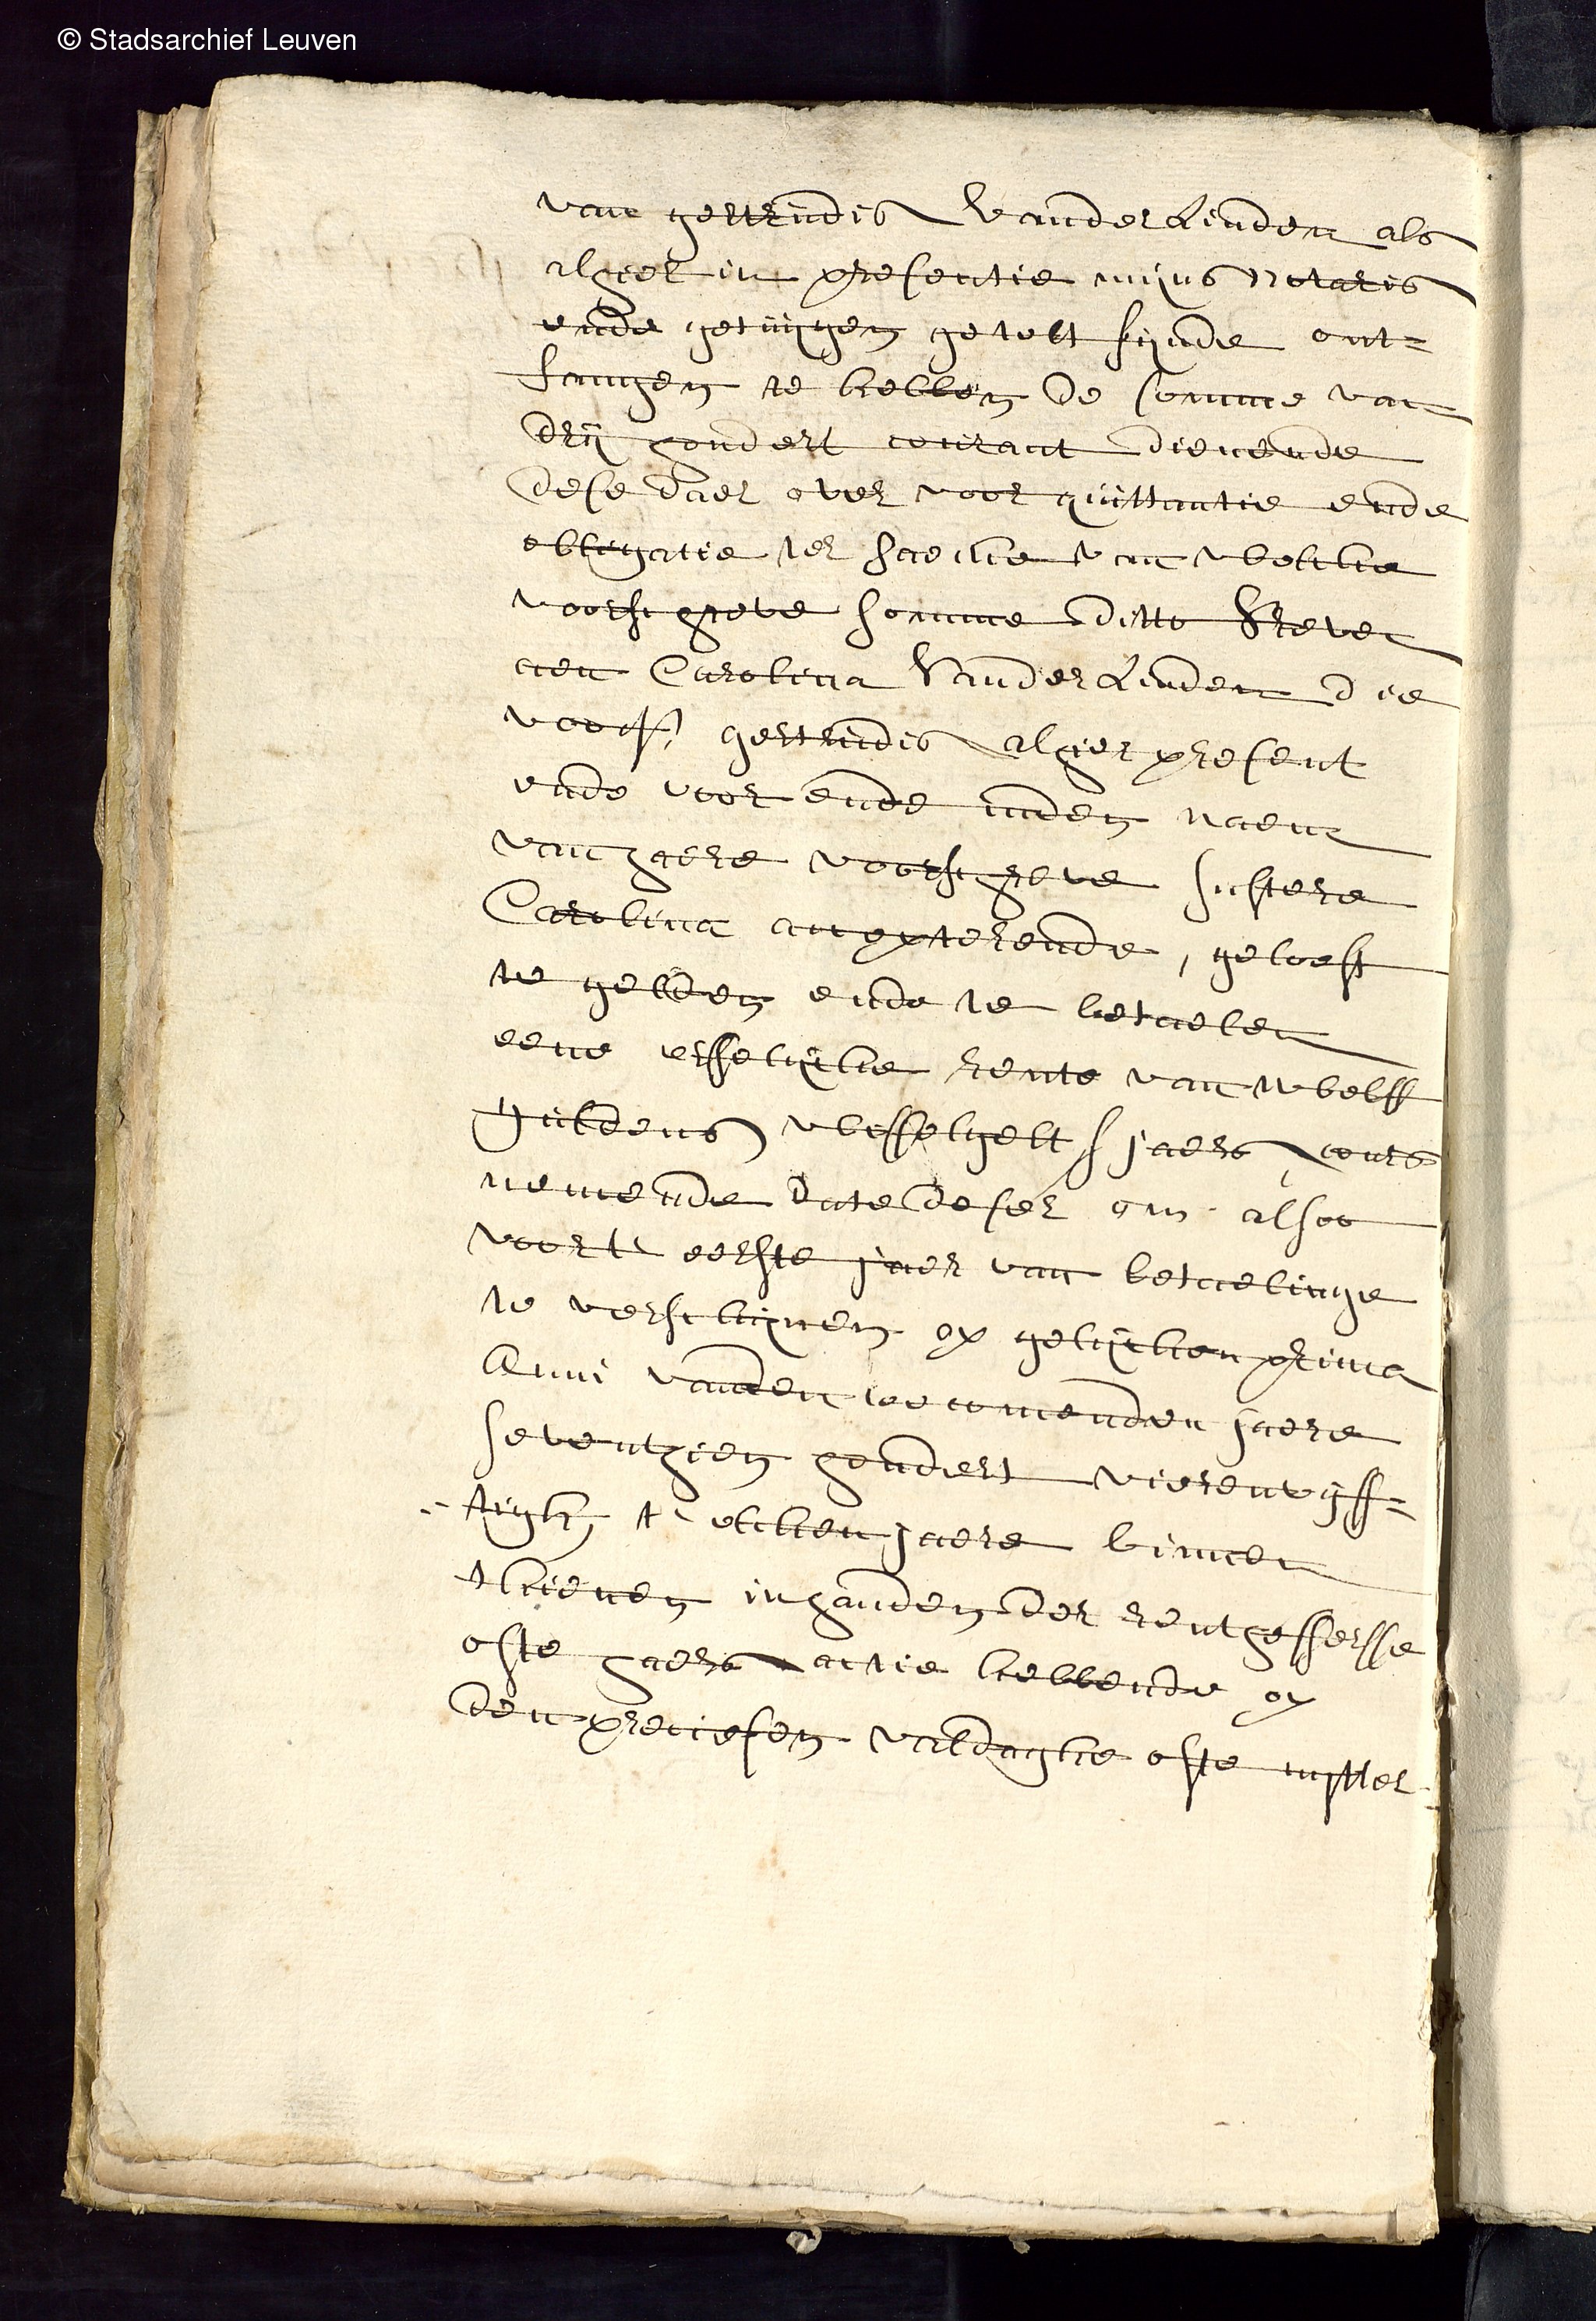 © Stadsarchief Leuven
van gertrudis Vander Linden als
alhier in presentie mijns Notaris
ende getuijgen getelt sijnde ont=
fangen te hebben de somme van
drij hondert courant dienende
dese daer over voor quittantie ende
obligatie ter saecke van welcke
voorschreve somme ditto
aen Carolina Vander Linden die
voors. gertrudis alhier present
ende voor ende inden naem
van haere voorschreve sustere
Carolina accepterende, gelooft
te gelden ende te betaelen
eene erffelijcke rente van twelff
guldens wisselgelt s jaers cours
nemende date deser om alsoo
voor t' eerste jaer van betaelinge
te verschijnen op gelijcken prima
Anni vanden toecomenden jaere
seventhien hondert vierenvijff=
tigh, t' elcken jaere binnen
thienen in handen der rentheffersse
ofte haers actie hebbende op
den preciesen valdaghe ofte uytter